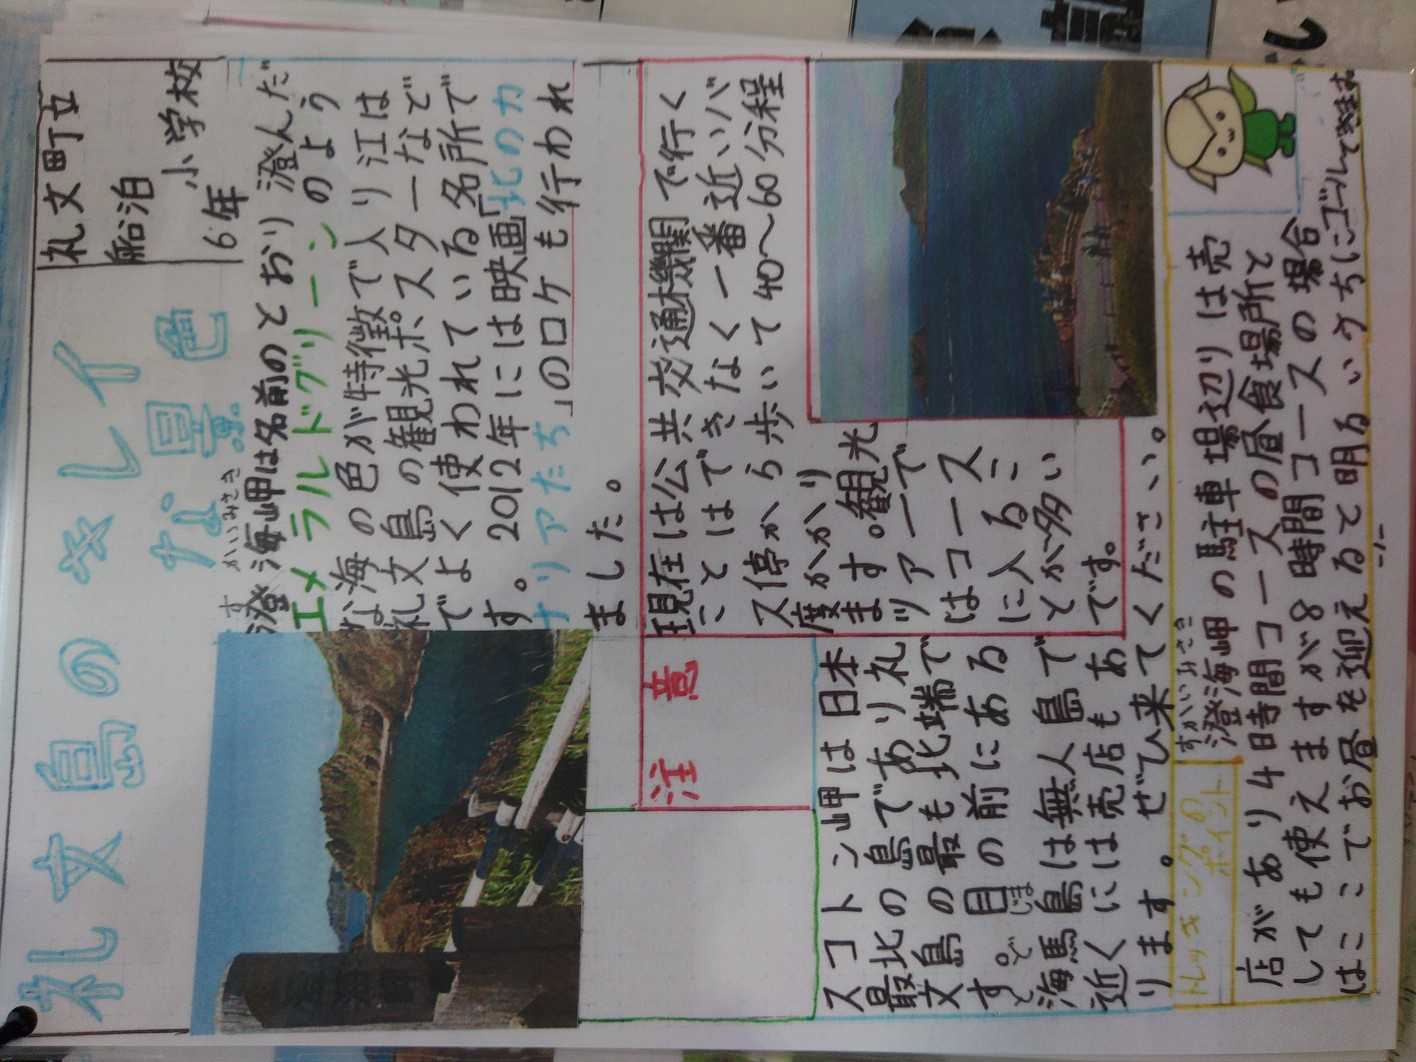 礼文島のキレイ
な景色
礼文町立
船泊
小学校
6年
澄海岬は名前のとおり澄んだ
エメラルドグリーンのよう
な海の色が特徴で入り江は
礼文島の観光ポスターなど
でよく使われている名所で
す。2012年には映画「北のカ
ナリアたち」のロケも行われ
ました。
注意
現在は公共交通機関で行く
ことはできなく一番近いバ
ス停から歩いて40〜60分程
度かかり
ます。観光
ツアーで
はコース
に入るこ
とが多い
です。
スコトン岬は日本
最北の島であり礼
文島の最も北端で
す。目の前にある
海馬島は無人島で
近くには売店もあ
ります。ぜひ来てください。
トレッキングの
ポイント
澄海岬の駐車場辺りは売
店があり4時間コースの昼食場所と
しても使えますが8時間コースの場合
はここでお昼を迎えると明るいうちにゴールできます